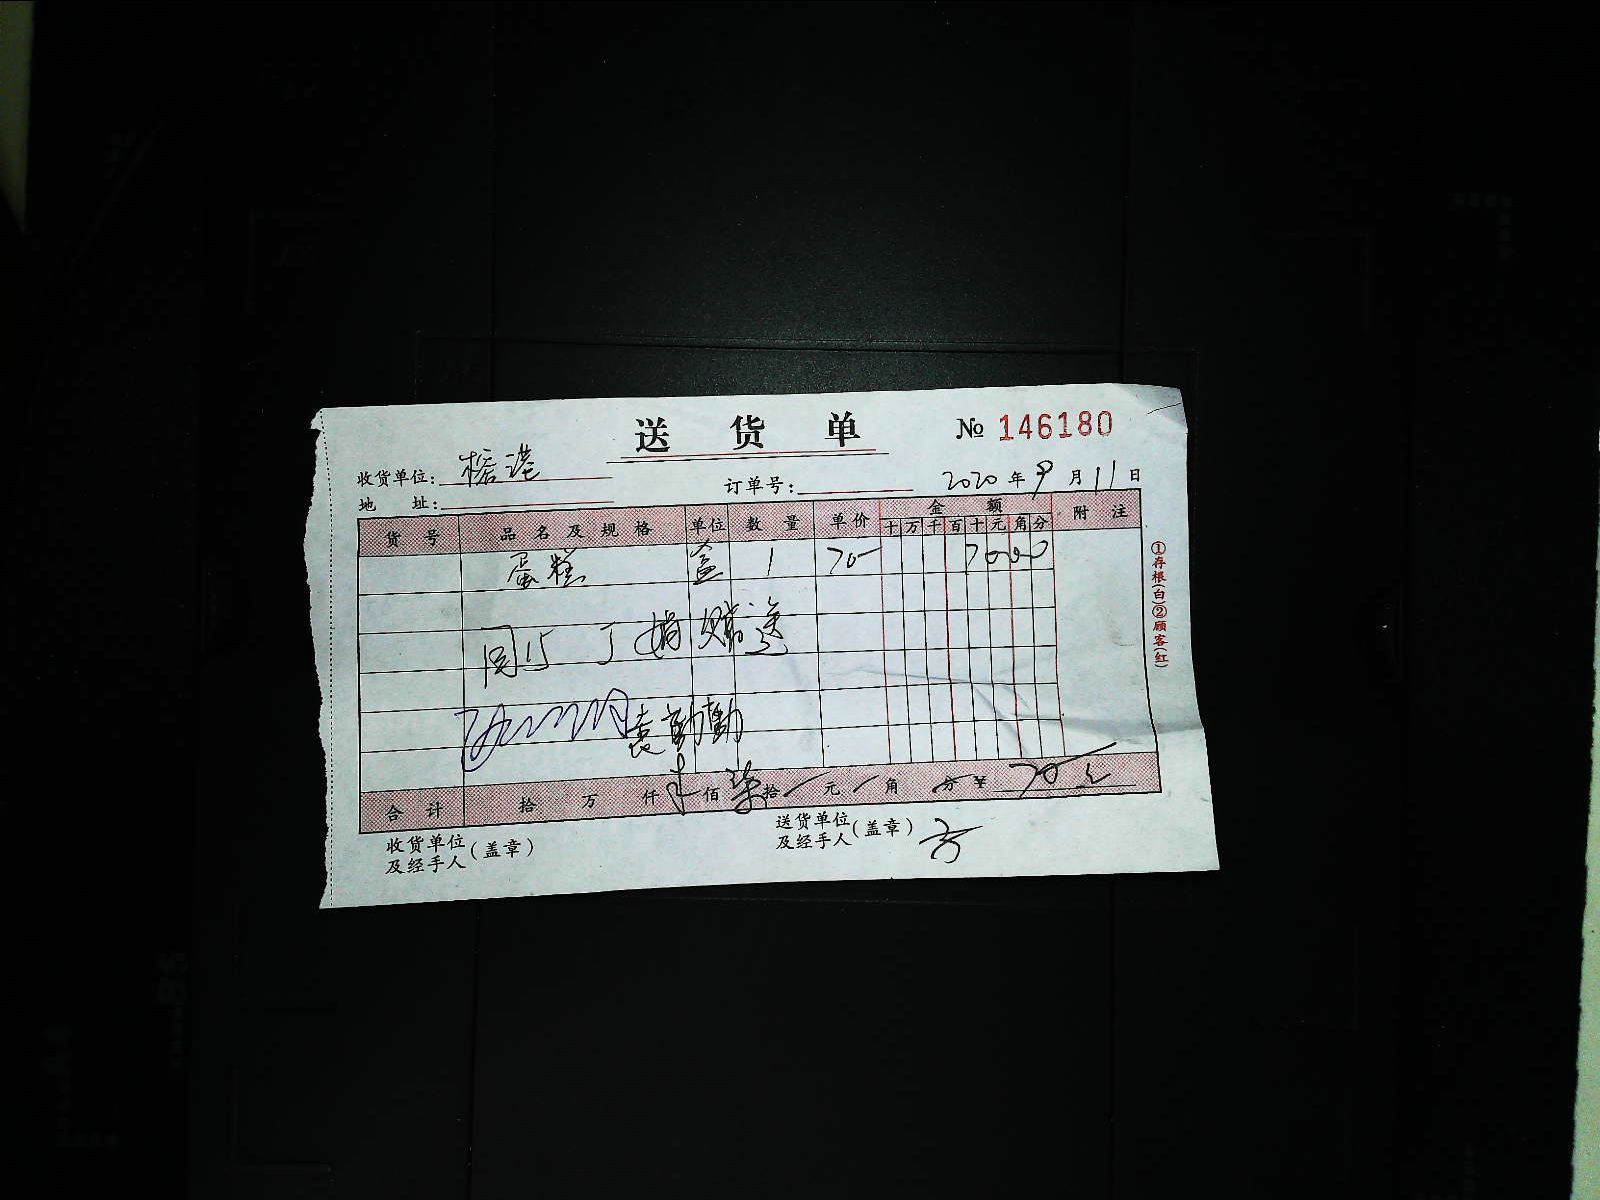 送货单 № 146180
收货单位: 榕港
订单号: 2020年9月11日
地 址:
货号 品名及规格 单位 数量 单价 金额 附注
十 万 千 百 十 元 角 分
蛋糕 盒 1 70- 7000
丁婧赠送
袁勤勤
合计 拾 万 仟 佰 柒拾 元 角 分 ¥ 70元
收货单位及经手人(盖章)
送货单位及经手人(盖章)
①存根(白)②顾客(红)